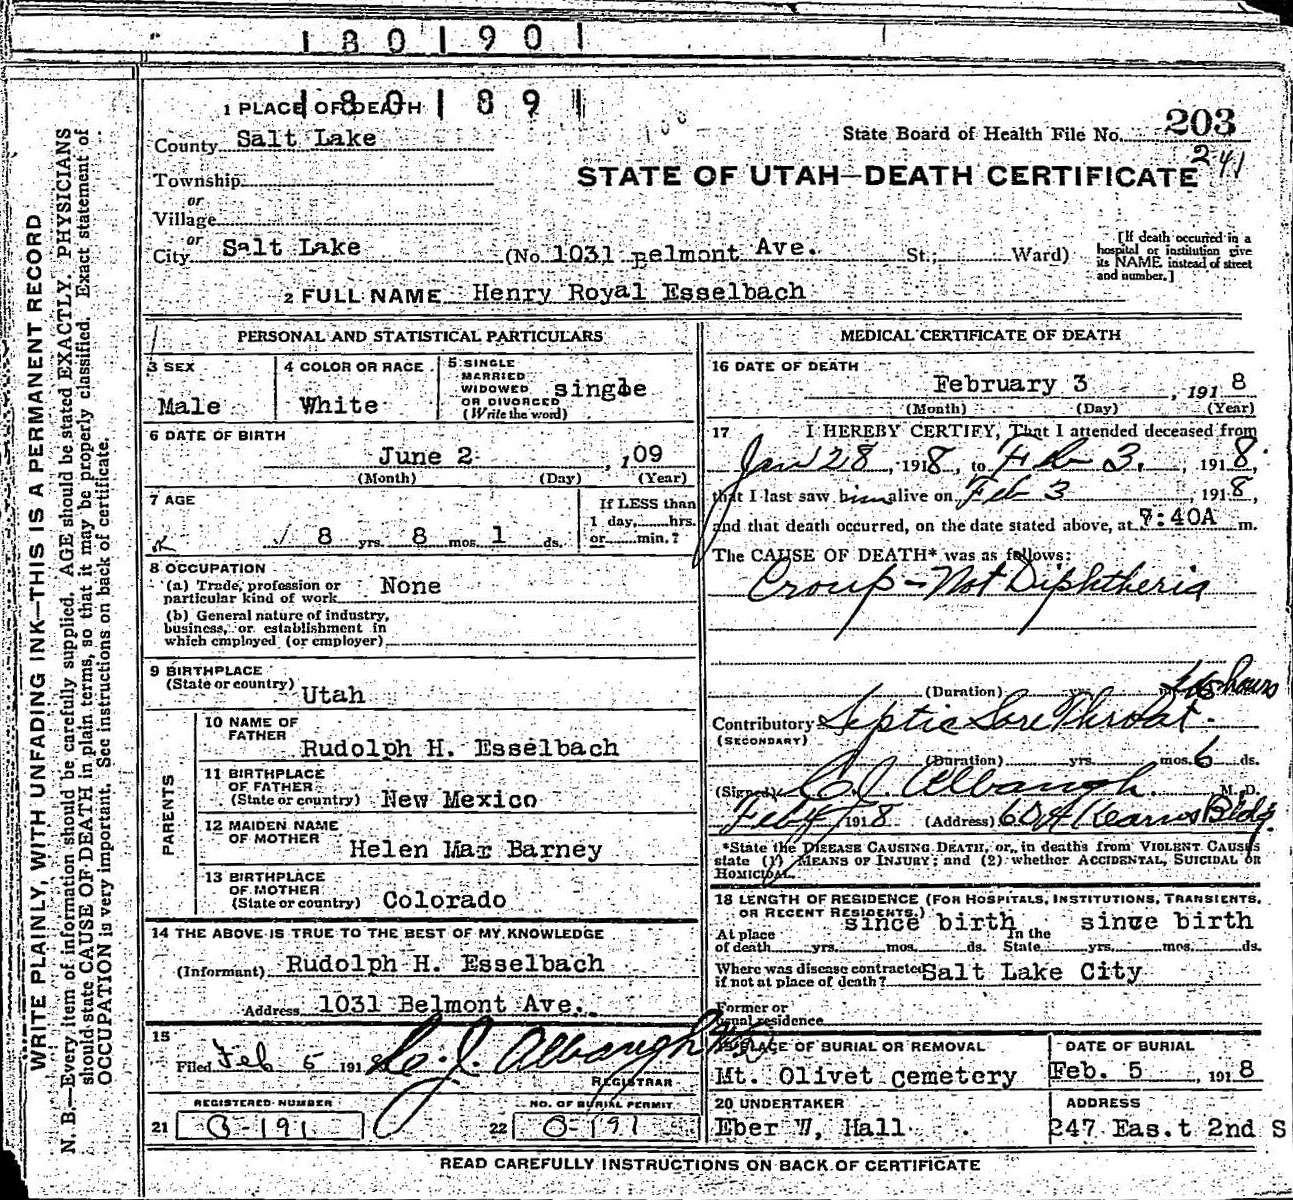 1 8 0 1 9 0 1
1 8 0 1 8 9 1
1 PLACE OF DEATH
County Salt Lake
Township
or
Village
or
City Salt Lake (No. 1031 Belmont Ave. St.; Ward)
[If death occurred in a hospital or institution give its NAME instead of street and number.]
State Board of Health File No. 203
241
STATE OF UTAH—DEATH CERTIFICATE
2 FULL NAME Henry Royal Esselbach
PERSONAL AND STATISTICAL PARTICULARS
3 SEX Male
4 COLOR OR RACE White
5 SINGLE MARRIED WIDOWED OR DIVORCED (Write the word) single
6 DATE OF BIRTH
June 2 , 109
(Month) (Day) (Year)
7 AGE
8 yrs. 8 mos. 1 ds.
If LESS than 1 day, hrs. or min.?
8 OCCUPATION
(a) Trade, profession or particular kind of work None
(b) General nature of industry, business, or establishment in which employed (or employer)
9 BIRTHPLACE
(State or country) Utah
PARENTS
10 NAME OF FATHER Rudolph H. Esselbach
11 BIRTHPLACE OF FATHER (State or country) New Mexico
12 MAIDEN NAME OF MOTHER Helen Mar Barney
13 BIRTHPLACE OF MOTHER (State or country) Colorado
14 THE ABOVE IS TRUE TO THE BEST OF MY KNOWLEDGE
(Informant) Rudolph H. Esselbach
Address 1031 Belmont Ave.
15
Filed Feb 5 191 C. J. Albaugh
REGISTRAR
REGISTERED NUMBER
NO. OF BURIAL PERMIT
21 O-191 22 O-191
MEDICAL CERTIFICATE OF DEATH
16 DATE OF DEATH
February 3 , 1918
(Month) (Day) (Year)
17 I HEREBY CERTIFY, That I attended deceased from
Jan 28, 1918, to Feb 3, 1918,
that I last saw him alive on Feb 3 1918,
and that death occurred, on the date stated above, at 7:40A m.
The CAUSE OF DEATH* was as follows:
Croup - Not Diphtheria
(Duration) yrs. hours
Contributory Septic Sore Throat.
(SECONDARY)
(Duration) yrs. mos. 6 ds.
(Signed) C. J. Albaugh. M. D.
Feb 4, 1918. (Address) Kearns Bldg.
*State the DISEASE CAUSING DEATH, or, in deaths from VIOLENT CAUSES
state (1) MEANS OF INJURY; and (2) whether ACCIDENTAL, SUICIDAL OR
HOMICIDAL.
18 LENGTH OF RESIDENCE (FOR HOSPITALS, INSTITUTIONS, TRANSIENTS,
OR RECENT RESIDENTS.)
At place of death since birth yrs. mos. ds. In the State since birth yrs. mos. ds.
Where was disease contracted if not at place of death? Salt Lake City
Former or usual residence
19 PLACE OF BURIAL OR REMOVAL
Mt. Olivet Cemetery
DATE OF BURIAL
Feb. 5 , 1918
20 UNDERTAKER
Eber W. Hall
ADDRESS
247 East 2nd S
READ CAREFULLY INSTRUCTIONS ON BACK OF CERTIFICATE
WRITE PLAINLY, WITH UNFADING INK—THIS IS A PERMANENT RECORD
N. B.—Every item of information should be carefully supplied. AGE should be stated EXACTLY. PHYSICIANS
should state CAUSE OF DEATH in plain terms, so that it may be properly classified. Exact statement of
OCCUPATION is very important. See instructions on back of certificate.